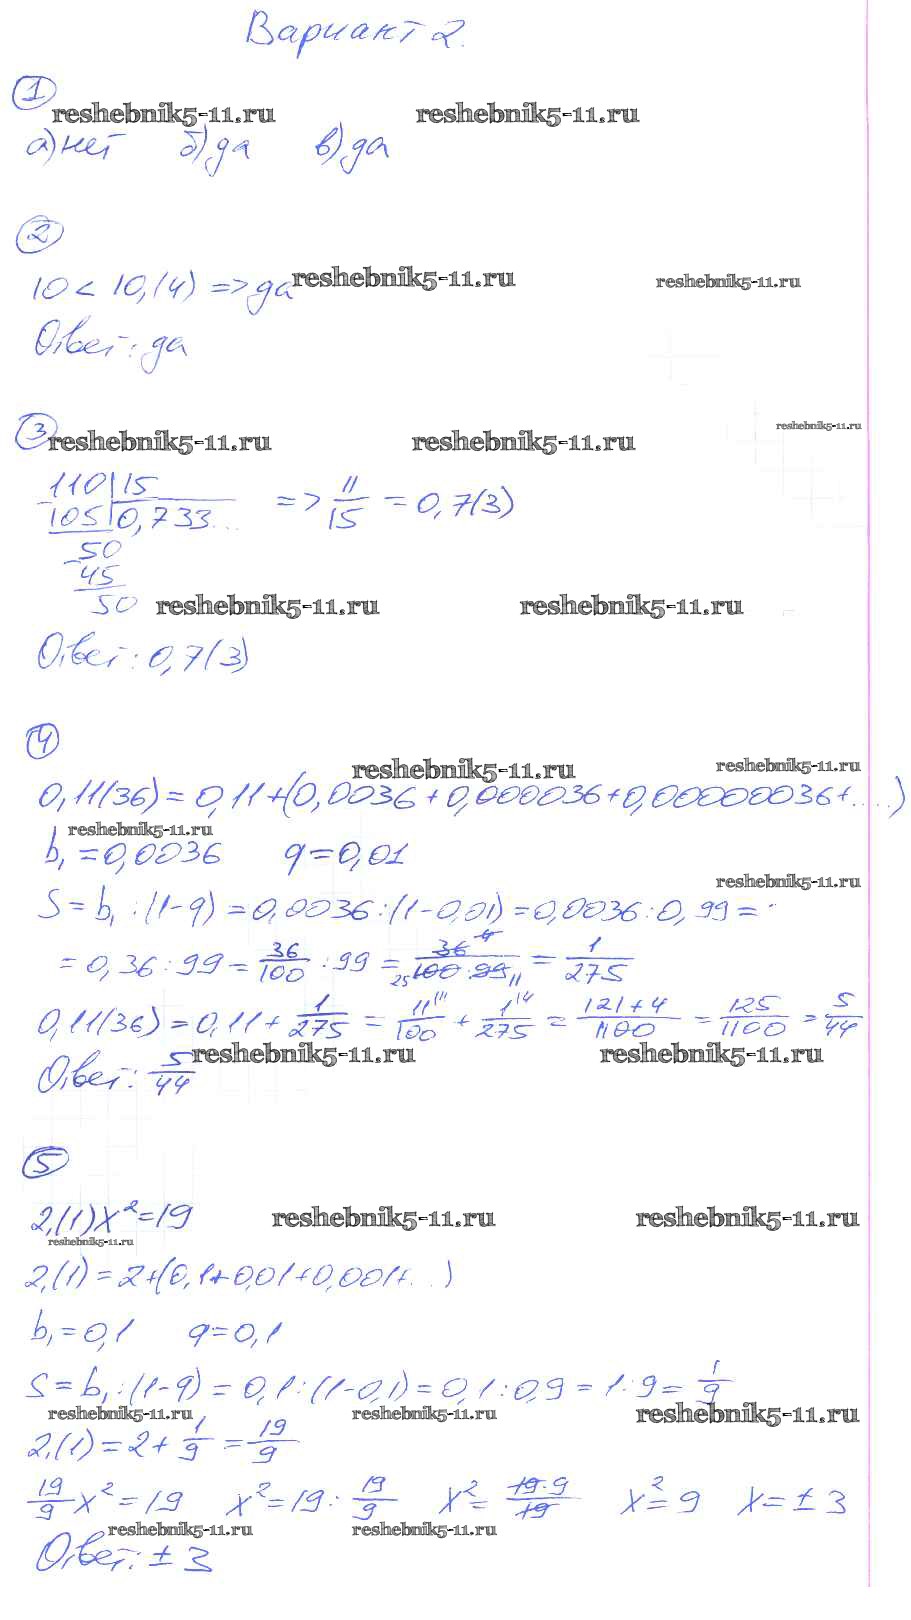 Вариант 2.
1
reshebnik5-11.ru reshebnik5-11.ru
а) нет б) да в) да
2
10 < 10,(4) => да reshebnik5-11.ru reshebnik5-11.ru
Ответ: да
3 reshebnik5-11.ru reshebnik5-11.ru reshebnik5-11.ru
110 | 15
105 | 0,733... => 11/15 = 0,7(3)
- 50
45
50 reshebnik5-11.ru reshebnik5-11.ru
Ответ: 0,7(3)
4
reshebnik5-11.ru reshebnik5-11.ru
0,11(36) = 0,11 + (0,0036 + 0,000036 + 0,00000036 + ....)
reshebnik5-11.ru
b₁ = 0,0036 q = 0,01
reshebnik5-11.ru
S = b₁ : (1-q) = 0,0036 : (1-0,01) = 0,0036 : 0,99 =
= 0,36 : 99 = 36/100 : 99 = 36 4/25 100·99 11 = 1/275
0,11(36) = 0,11 + 1/275 = 11 11/100 + 1 4/275 = 121+4/1100 = 125/1100 = 5/44
reshebnik5-11.ru reshebnik5-11.ru
Ответ: 5/44
5
2,(1)x² = 19 reshebnik5-11.ru reshebnik5-11.ru
reshebnik5-11.ru
2,(1) = 2 + (0,1 + 0,01 + 0,001 + ...)
b₁ = 0,1 q = 0,1
S = b₁ : (1-q) = 0,1 : (1-0,1) = 0,1 : 0,9 = 1 : 9 = 1/9
reshebnik5-11.ru reshebnik5-11.ru reshebnik5-11.ru
2,(1) = 2 + 1/9 = 19/9
19/9 x² = 19 x² = 19 : 19/9 x² = 19·9/19 x² = 9 x = ± 3
reshebnik5-11.ru reshebnik5-11.ru
Ответ: ± 3